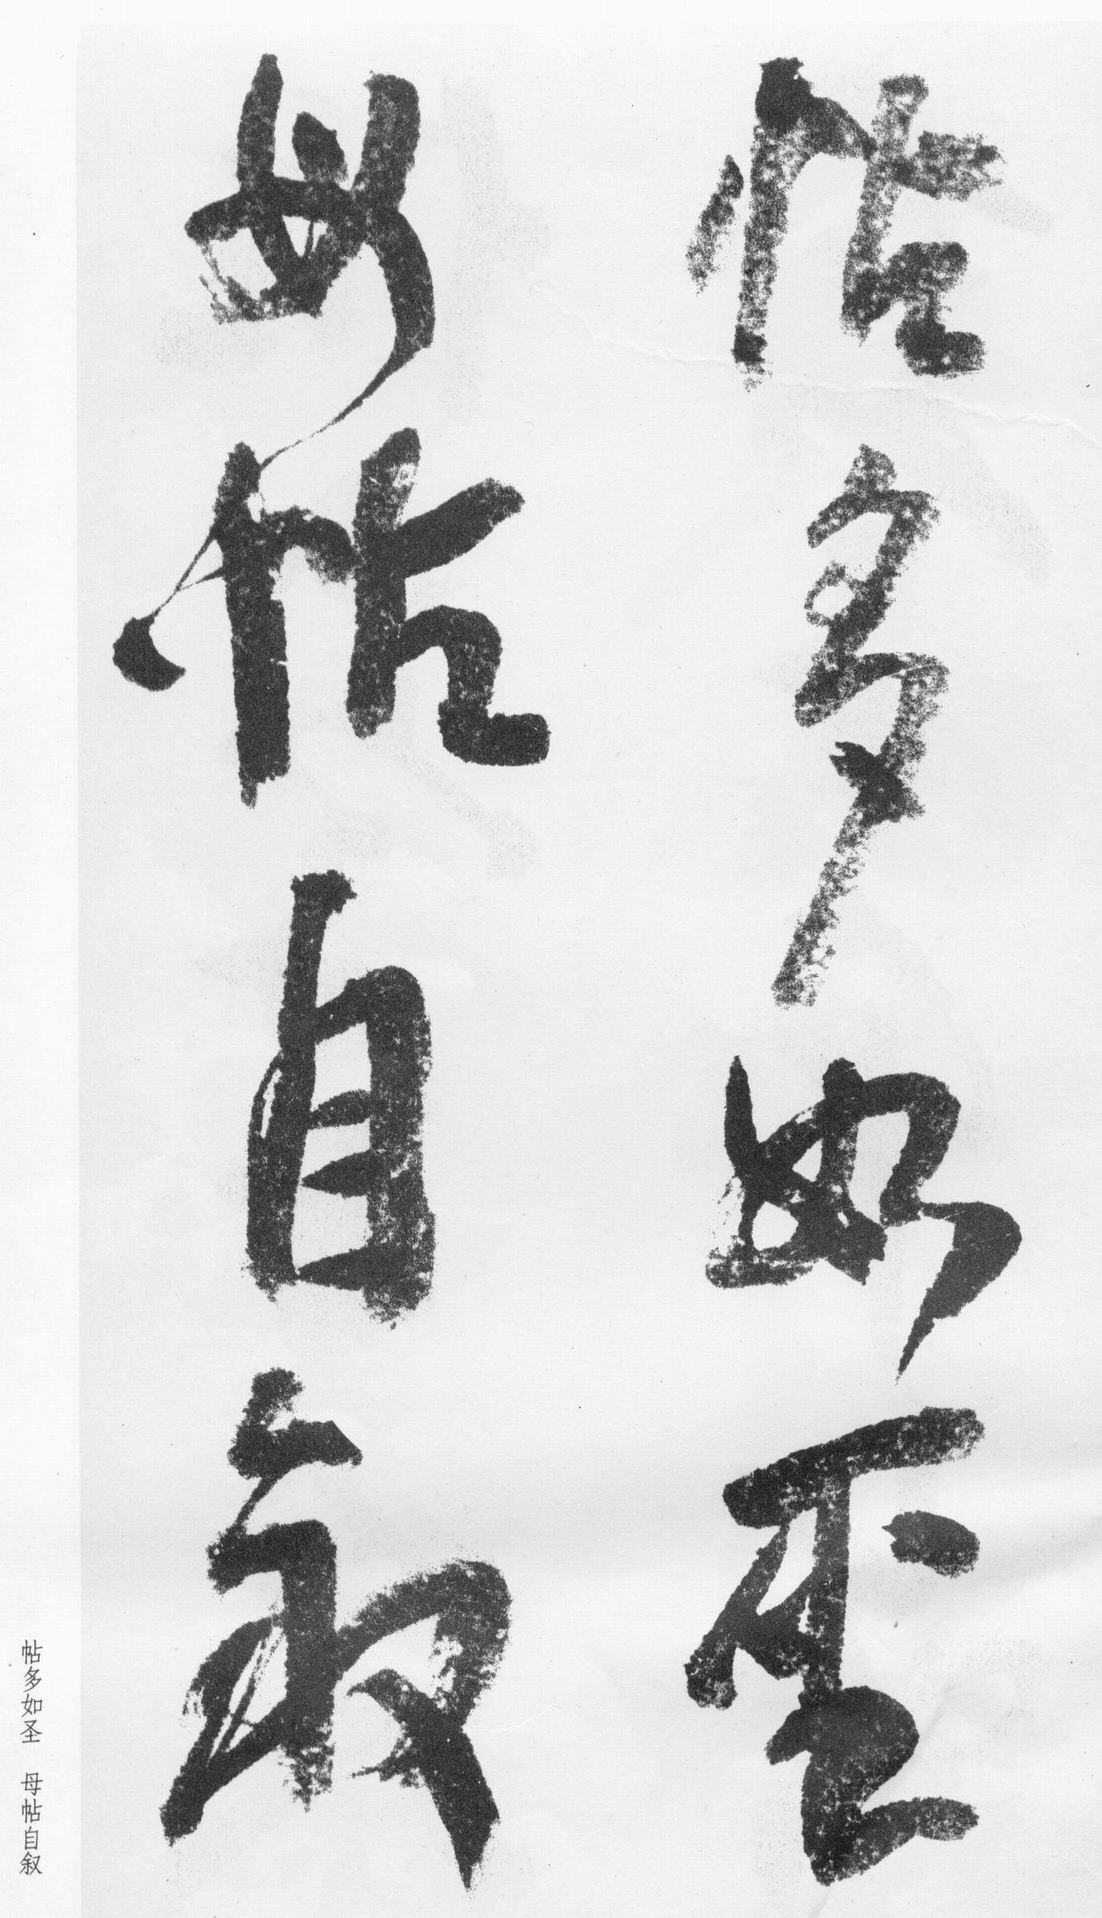 帖多如圣
母帖自叙
帖多如圣 母帖自叙